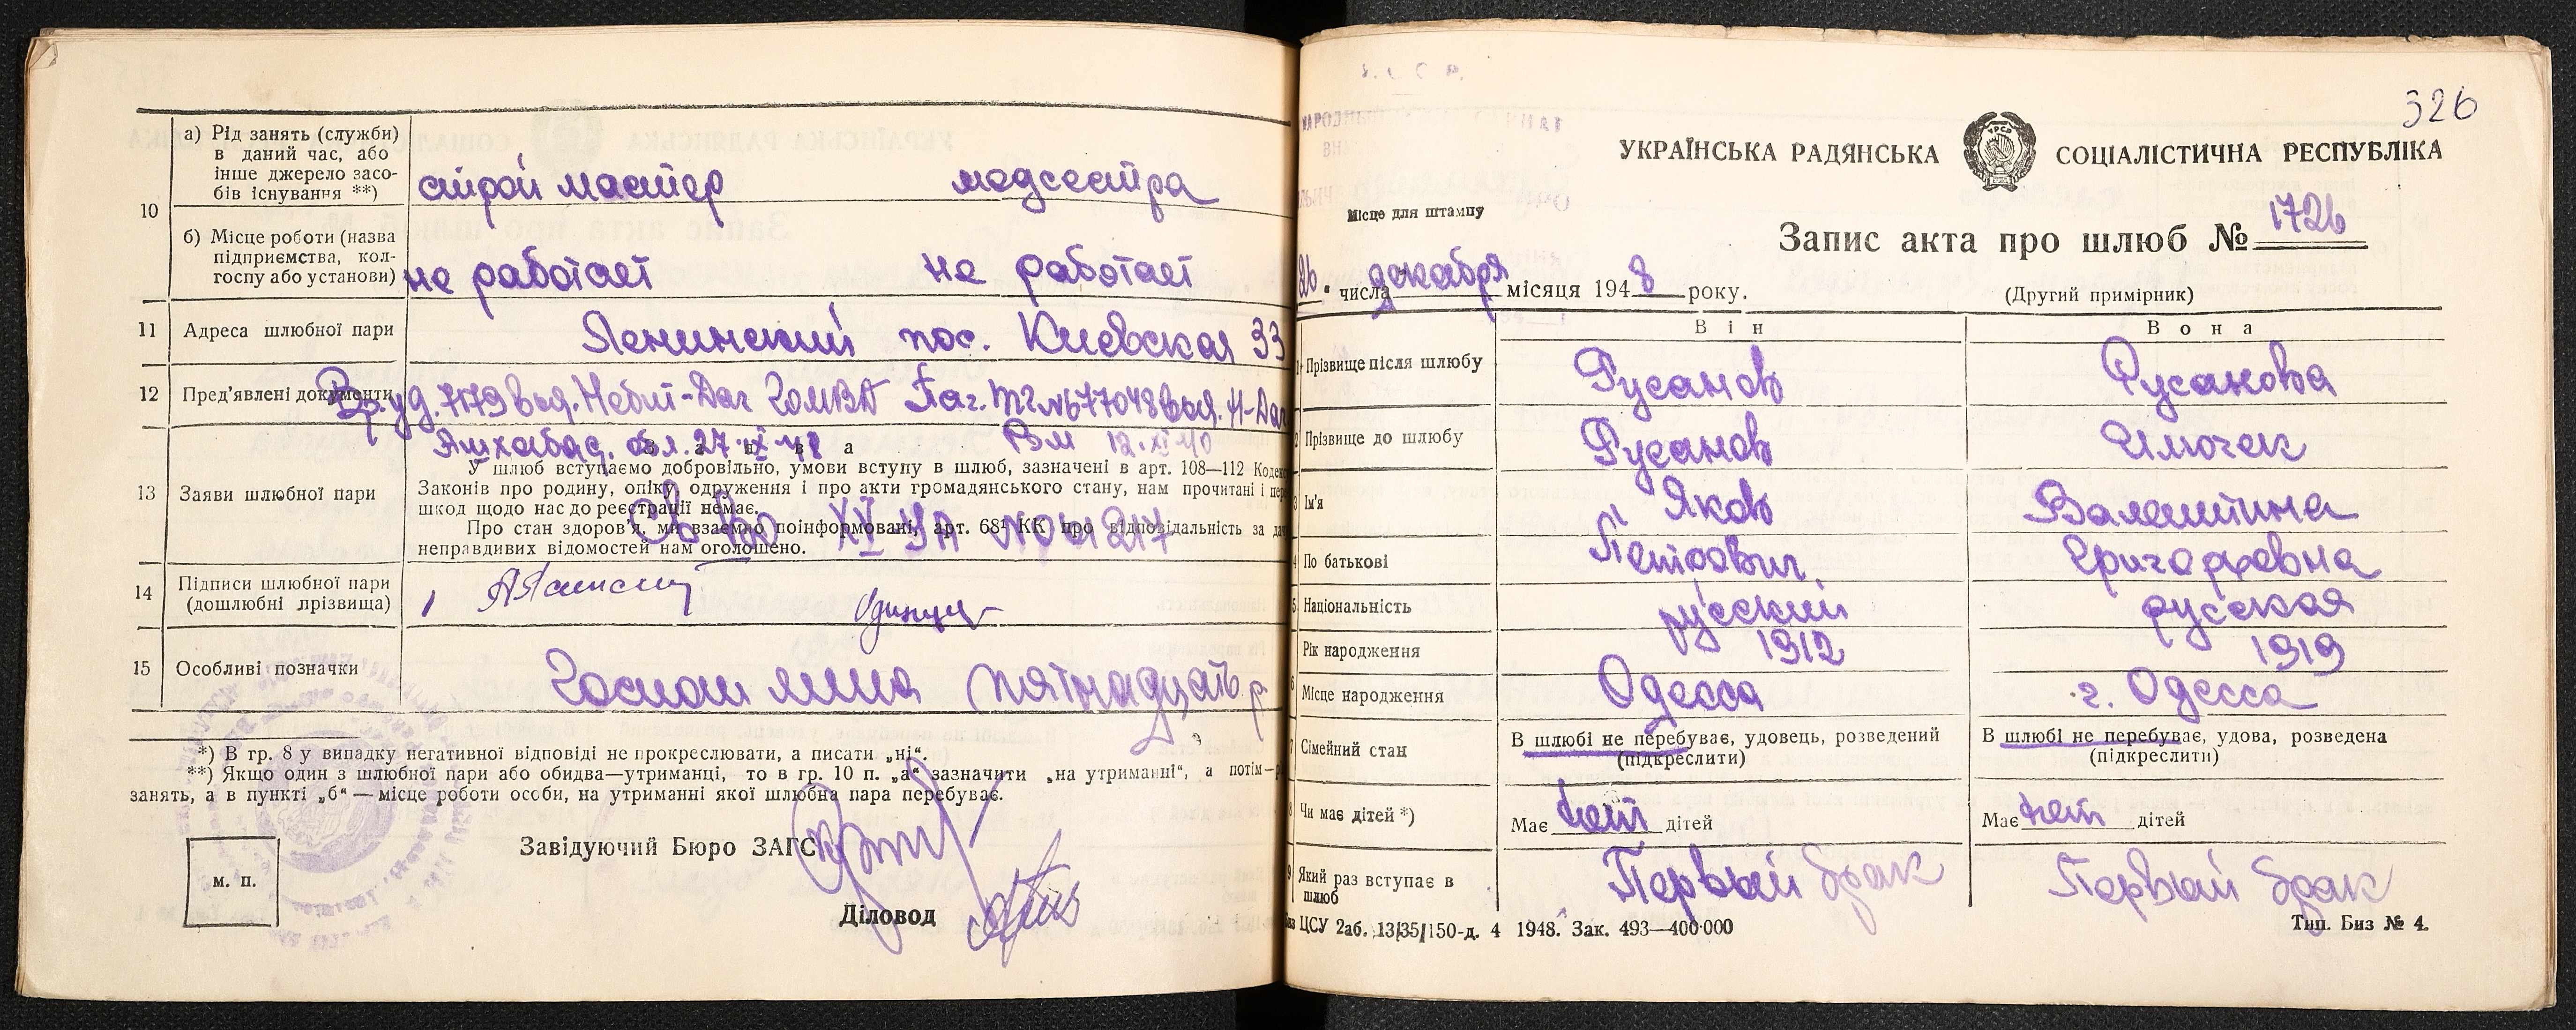 а) Рід занять (служби)
в даний час, або
інше джерело засо-
бів існування **)
строй мастер
медсестра
10
б) Місце роботи (назва
підприємства, кол-
госпу або установи)
не работает
не работает
11
Адреса шлюбної пари
Ленинский пос. Киевская 33
12
Пред’явлені документи
Вр. уд. 7179 выд. Небит-Даг ГОМВД
выд. Н-Даг
Ашхабад. обл. 27
13
Заяви шлюбної пари
У шлюб вступаємо добровільно, умови вступу в шлюб, зазначені в арт. 108—112 Кодек
Законів про родину, опіку, одруження і про акти громадянського стану, нам прочитані і
шкод щодо нас до реєстрації немає.
Про стан здоров’я, ми взаємно поінформовані, арт. 68¹ КК про відповідальність за
неправдивих відомостей нам оголошено.
14
Підписи шлюбної пари
(дошлюбні прізвища)
15
Особливі позначки
Госпошлина пятнадцать р
*) В гр. 8 у випадку негативної відповіді не прокреслювати, а писати „ні“.
**) Якщо один з шлюбної пари або обидва—утриманці, то в гр. 10 п. „а“ зазначити „на утриманні“, а потім—
занять, а в пункті „б“ — місце роботи особи, на утриманні якої шлюбна пара перебуває.
Завідуючий Бюро ЗАГС
м. п.
Діловод
326
УКРАЇНСЬКА РАДЯНСЬКА СОЦІАЛІСТИЧНА РЕСПУБЛІКА
Місце для штампу
Запис акта про шлюб № 1726
26 " числа декабря місяця 1948 року.
(Другий примірник)
Він
Вона
Прізвище після шлюбу
Русанов
Русанова
2
Прізвище до шлюбу
Русанов
3
Ім’я
Яков
Валентина
4
По батькові
Петрович
Григорьевна
5
Національність
русский
русская
Рік народження
1912
1919
6
Місце народження
Одесса
г. Одесса
7
Сімейний стан
В шлюбі не перебуває, удовець, розведений
(підкреслити)
В шлюбі не перебуває, удова, розведена
(підкреслити)
8
Чи має дітей *)
Має нет дітей
Має нет дітей
9
Який раз вступає в
шлюб
Первый брак
Первый брак
ЦСУ 2аб. 13/35/150-д. 4 1948. Зак. 493—400·000
Тип. Биз № 4.